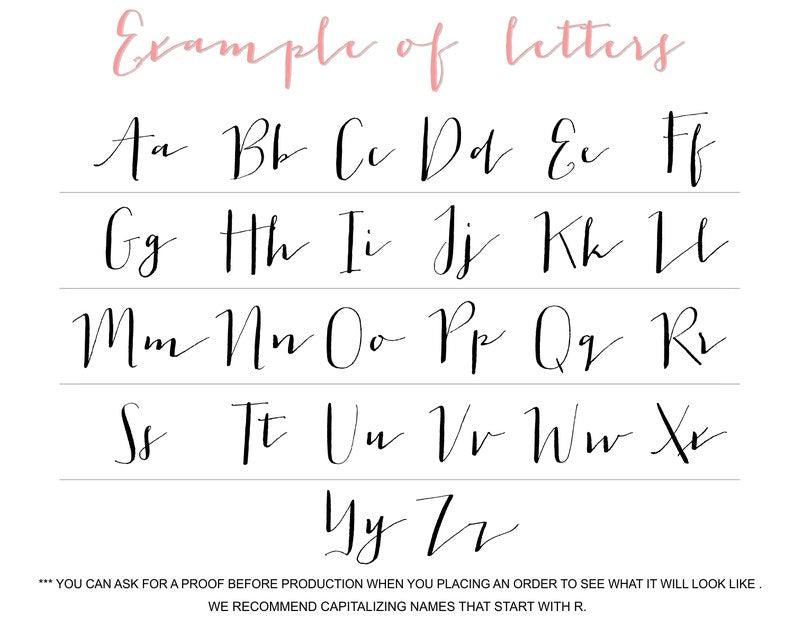 Example of letters
Aa Bb Cc Dd Ee Ff
Gg Hh Ii Jj Kk Ll
Mm Nn Oo Pp Qq Rr
Ss Tt Uu Vv Ww Xx
Yy Zz
*** YOU CAN ASK FOR A PROOF BEFORE PRODUCTION WHEN YOU PLACING AN ORDER TO SEE WHAT IT WILL LOOK LIKE .
WE RECOMMEND CAPITALIZING NAMES THAT START WITH R.